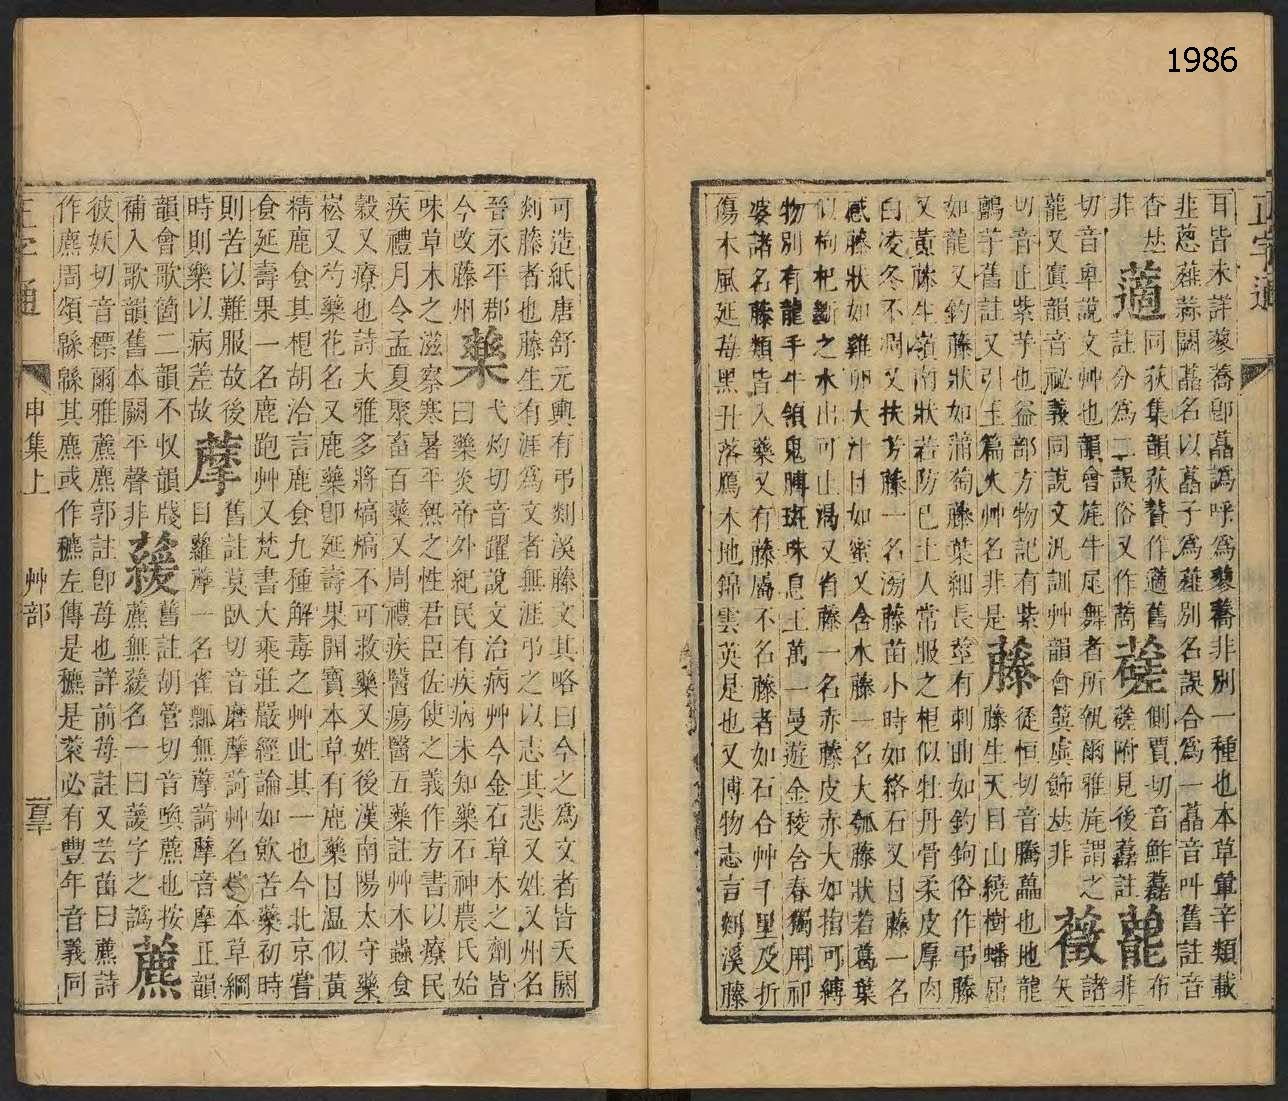 1986
正字通
耳皆未詳蔆蕎卽藠譌呼爲蔆蕎非別一種也本草葷辛類載
韭蔥薤蒜闕藠名以藠子爲薤別名誤合爲一藠音叫舊註音
杳𠀤同 薖 荻集韻荻贅作薖舊 蒫 側賈切音鮓 蘢 布
非 註分爲二誤俗又作蔄 蒫附見後 註非
切音卑說文艸也韻會旄牛尾舞者所執爾雅旄謂之 薇 諸
蘢又寘韻音祕義同說文汎訓艸韻會簨虡飾𠀤非 矢
切音止紫芋也益部方物記有紫 藤 徒恒切音騰藟也地龍
鸕芋舊註又引玉篇大艸名非是 藤生天目山繞樹蟠屈
如龍又釣藤狀如蒲萄藤葉細長莖有刺曲如釣鉤俗作弔藤
又黃藤生嶺南狀若防巳土人常服之相似牡丹骨柔皮厚肉
白凌冬不凋又扶芳藤一名滂藤苗小時如絡石又甘藤一名
感藤狀如雞卵大汁甘如蜜又含水藤一名大瓠藤狀若葛葉
似枸杞斷之水出可止渴又省藤一名赤藤皮赤大如指可縛
物別有龍手牛領鬼膊斑珠息王萬一曼遊金稜含春獨用祁
婆諸名藤類皆入藥又有藤屬不名藤者如石合艸千里及折
傷木風延莓黑丑落鴈木地錦雲英是也又博物志言剡溪藤
可造紙唐舒元輿有弔剡溪藤文其略曰今之爲文者皆夭閼
剡藤者也藤生有涯爲文者無涯弔之以志其悲又姓又州名
晉永平郡 藥 弋灼切音躍說文治病艸今金石草木之劑皆
今改藤州 曰藥炎帝外紀民有疾病未知藥石神農氏始
味草木之滋察寒暑平熱之性君臣佐使之義作方書以療民
疾禮月令孟夏聚畜百藥又周禮疾醫瘍醫五藥註艸木蟲食
穀又療也詩大雅多將熇熇不可救藥又姓後漢南陽太守藥
崧又芍藥花名又鹿藥卽延壽果開寶本草有鹿藥甘温似黃
精鹿食其根胡洽言鹿食九種解毒之艸此其一也今北京嘗
食延壽果一名鹿跑艸又梵書大乘莊嚴經論如飲苦藥初時
則苦以難服故後 藦 舊註莫臥切音磨藦䓖艸名按本草綱
時則樂以病差故 目蘿藦一名雀瓢無藦䓖藦音摩正韻
韻會歌箇二韻不收韻牋 萲 舊註胡管切音喚藨也按
補入歌韻舊本闕平聲非 藨無萲名一曰萲字之譌 藨
彼妖切音標爾雅藨麃郭註卽莓也詳前莓註又芸菌曰藨詩
作麃周頌緜緜其麃或作穮左傳是穮是蔉必有豐年音義同
正字通
申集上
艸部